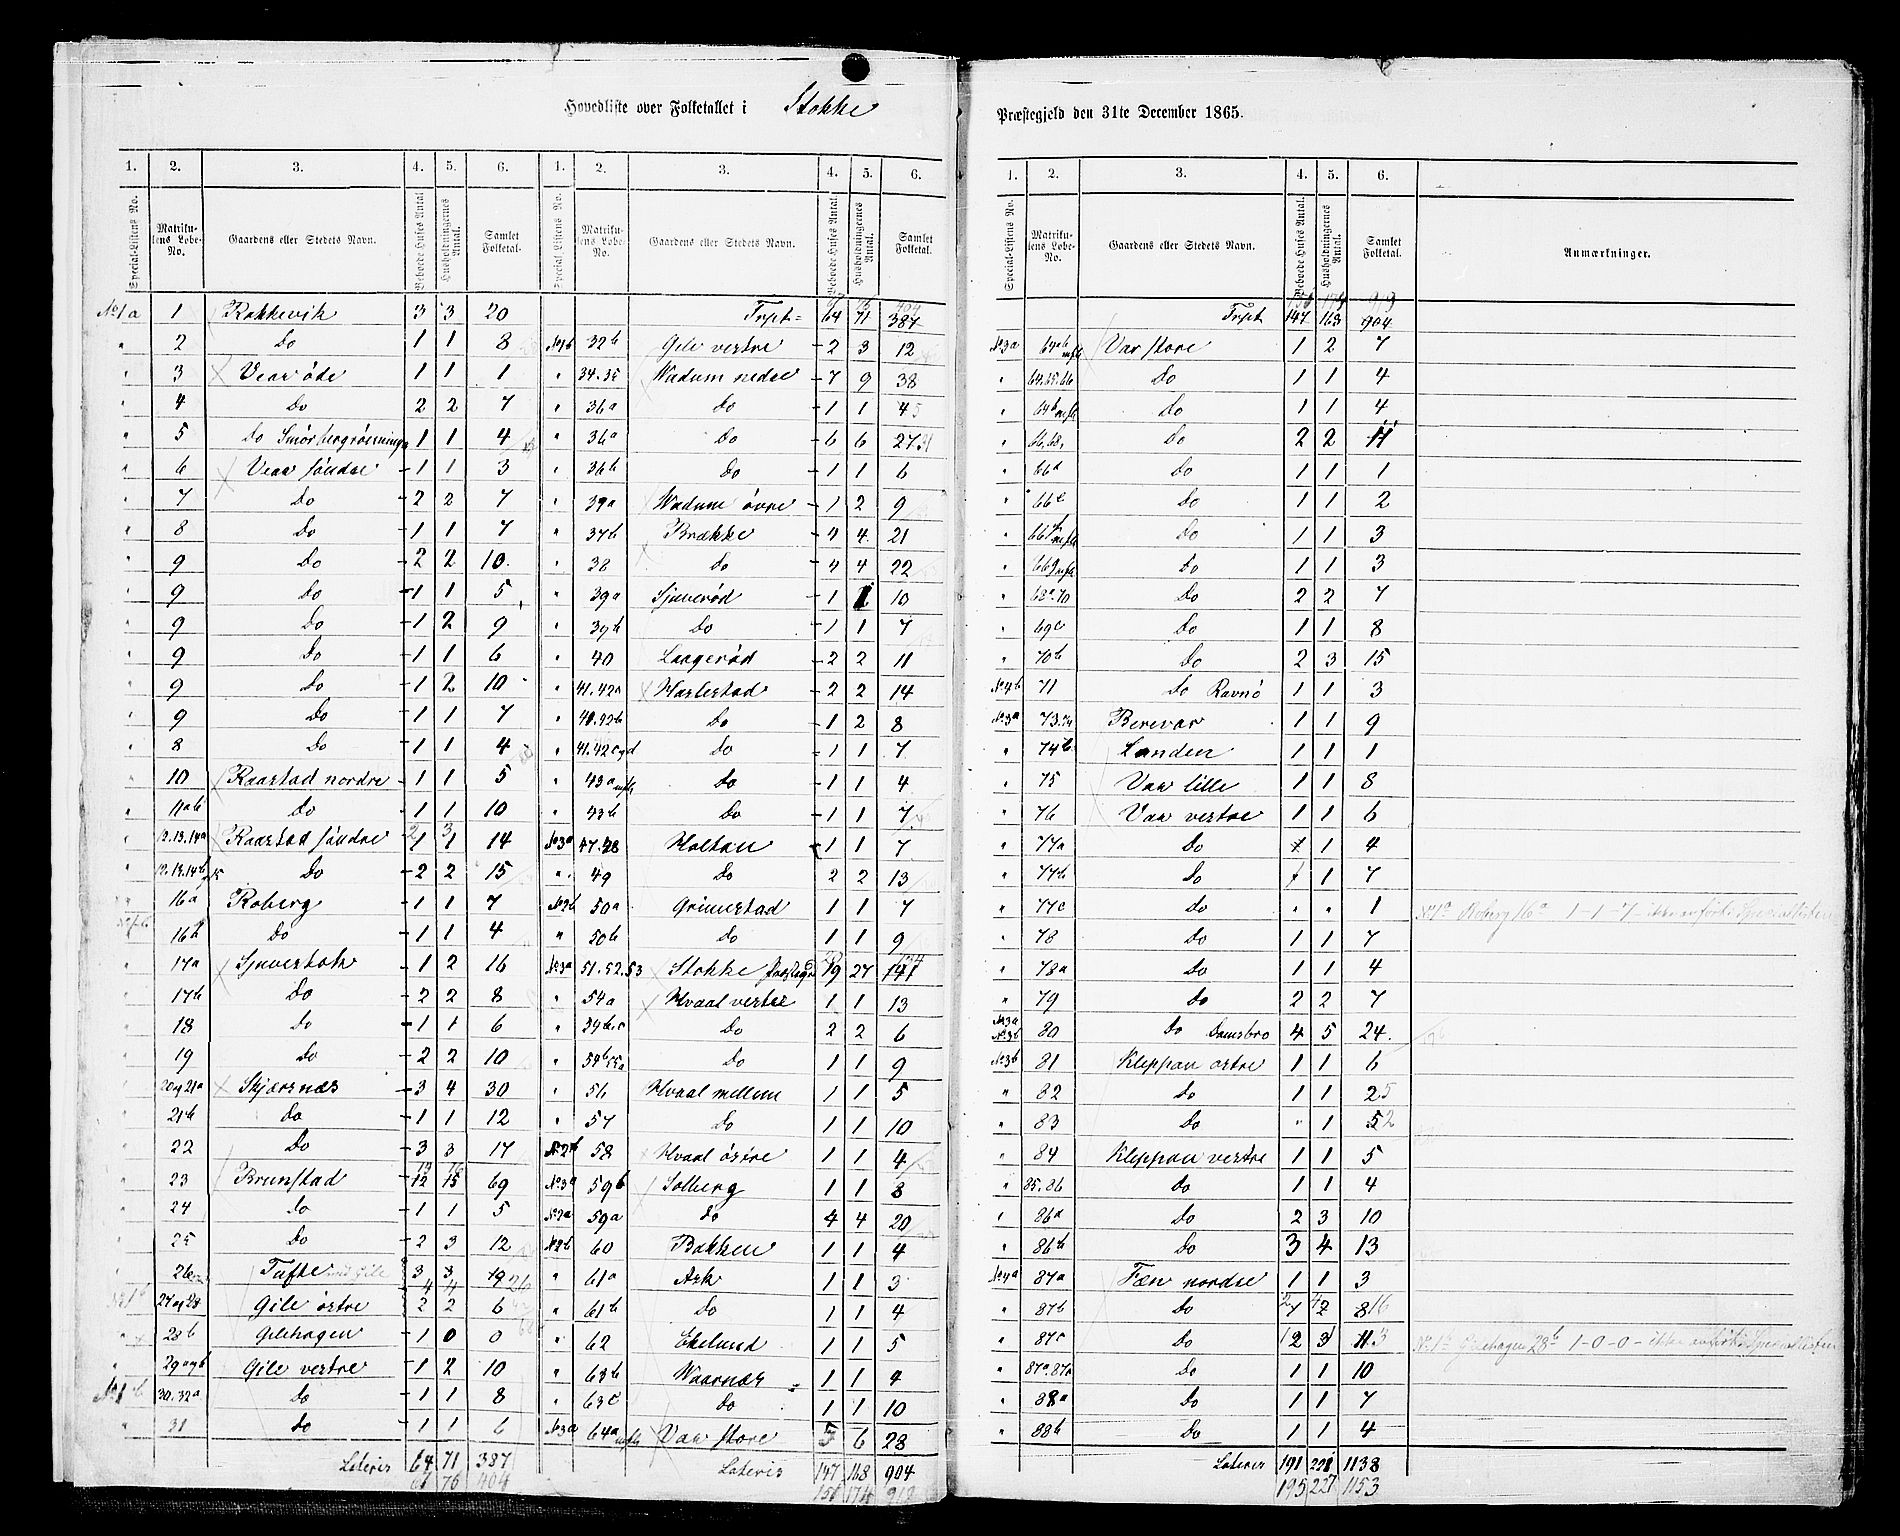 Hovedliste over Folketallet i Stokke Præstegjeld den 31te December 1865.
1. 2. 3. 4. 5. 6. 1. 2. 3. 4. 5. 6.
Special-Listens No. Matrikulens Løbe-No. Gaardens eller Stedets Navn. Beboede Huses Antal. Husholdningernes Antal. Samlet Folketal. Special-Listens No. Matrikulens Løbe-No. Gaardens eller Stedets Navn. Beboede Huses Antal. Husholdningernes Antal. Samlet Folketal.
No 1a 1 Rakkevik 3 3 20
" 2 Do 1 1 8
" 3 Vear öde 1 1 1
" 4 Do 2 2 7
" 5 Do Smörbergrönningen 1 1 4
" 6 Vear söndre 1 1 3
" 7 Do 2 2 7
" 8 Do 1 1 7
" 9 Do 2 2 10
" 9 Do 1 1 5
" 9 Do 1 2 9
" 9 Do 1 1 6
" 9 Do 1 2 10
" 9 Do 1 1 7
" 8 Do 1 1 4
" 10 Raastad nordre 1 1 5
" 11ab Do 1 1 10
" 12.13.14a Raastad söndre 1 1 14
" 12.13.14b Do 2 2 15
" 16a Roberg 1 1 7
16b Do 1 1 4
" 17a Sjuestok 1 2 16
" 17b Do 2 2 8
" 18 Do 1 1 6
" 19 Do 2 2 10
" 20og21a Skjærsnæs 3 4 30
" 21b Do 1 1 12
" 22 Do 3 3 17
23 Brunstad 12 15 69
" 24 Do 1 1 5
" 25 Do 2 3 12
" 26 Tufte med Gile 3 3 19
27og28 Gile östre 2 2 6
" 28b Gilehagen 1 0 0
" 29aogb Gile vestre 1 2 10
No 1b 30.32a Do 1 1 8
" 31 Do 1 1 6
Lateris 64 71 387
67 76 404
Trspt 64 71 387
No 1b 32b Gile vestre 2 3 12
" 34.35 Wadum nedre 7 9 38
" 36a Do 1 1 4
" 36a Do 6 6 27
" 36b Do 1 1 6
" 39a Wadum övre 1 2 9
" 37b Brække 4 4 21
" 38 Do 4 4 22
" 39a Sjuerød 1 1 10
" 39b Do 1 1 7
" 40 Laagerød 2 2 11
" 41.42a Harlestad 2 2 14
" 40.42b Do 1 2 8
" 41.42cogd Do 1 1 7
" 43a mfl Do 1 1 4
" 43b Do 1 1 7
No 3a 47.48 Holtan 1 1 7
" 49 Do 2 2 13
No 2b 50a Grimestad 1 1 7
" 50b Do 1 1 9
No 3a 51.52.53 Stokke Præstegd 19 27 141
" 54a Hvaal vestre 1 1 13
" 54b.c Do 2 2 6
" 54b55a Do 1 1 9
" 56 Hvaal mellem 1 1 5
" 57 Do 1 1 10
No 2b 58 Hvaal östre 1 1 4
No 3a 59b Solberg 1 1 8
No 2a 59a Do 4 4 20
No 2b 60 Bakken 1 1 4
" 61a Ask 1 1 3
" 61b Do 1 1 4
" 62 Ekelund 1 1 5
" 63b Waarnæs 1 1 4
" 63c Do 1 1 10
No 3a 64a mfl Vaar store 5 6 28
Lateris 147 168 904
151 174 919
1. 2. 3. 4. 5. 6.
Special-Listens No. Matrikulens Løbe-No. Gaardens eller Stedets Navn. Beboede Huses Antal. Husholdningernes Antal. Samlet Folketal. Anmærkninger.
151 174 919
Trspt 147 168 904
No 3a 64ab mfl Var store 1 2 7
" 64.65.66 Do 1 1 4
" 64b mfl Do 1 1 4
" 66.68 Do 2 2 11
" 66d Do 1 1 1
" 66e Do 1 1 2
" 66f mfl Do 1 1 3
" 669 mfl Do 1 1 3
" 68a.70 Do 2 2 7
" 69c Do 1 1 8
" 70b Do 2 3 15
No 4b 71 Do Ravnö 1 1 3
No 3a 73.74 Berevar 1 1 9
" 74b Landen 1 1 1
" 75 Vaar lille 1 1 8
" 76 Vaar vestre 1 1 6
" 77a Do 1 1 4
" 77b Do 1 1 7
" 77c Do " " 1 No 1a Roberg 16a 1-1-7- ikke anført i Speciallisten
" 78 Do 1 1 7
" 78a Do 1 1 4
" 79 Do 2 2 7
No 3a No 3b 80 Do Damsbro 4 5 24
No 3b 81 Kleppan østre 1 1 6
" 82 Do 1 1 25
" 83 Do " 1 52
" 84 Kleppan vestre 1 1 5
" 85.86 Do 1 1 4
" 86a Do 2 3 10
" 86b Do 3 4 13
No 4a 87a Fæn nordre 1 1 3
" 87b Do 1 2 8 16
" 87c Do 2 3 11 No 1a Gilehagen 28b 1-0-0- ikke anført i Speciallisten
" 87a.87d Do 1 1 10
" 88a Do 1 1 7
" 88b Do 1 1 4
Lateris 191 221 1138
195 227 1153